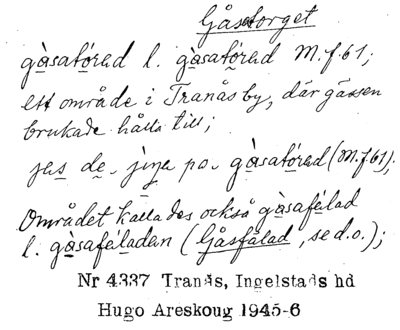 Gåsatorget
gàsatóred l. gàsatóred M.f.61;
ett område i Tranås by, där gässen
brukade hålla till;
jes de_ jina po_ gàsatóred (M.f.61);
Området kallades också gàsafálad
l. gàsafáladen (Gåsfälad, se d.o.);
Nr 4337 Tranås, Ingelstads hd
Hugo Areskoug 1945-6